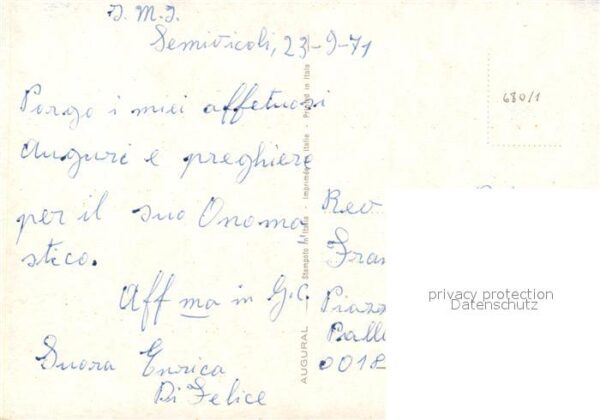 J. M. J.
Semivicoli, 23-9-71
Porgo i miei affetuosi
auguri e preghiere
per il suo Onoma
stico.
Aff ma in G.C.
Suora Enrica
Di Felice
AUGURAL - Stampato in Italia - Imprimé en Italie - Printed in Italy
680/1
Rev
Fran
Piazz
Palle
0018
privacy protection
Datenschutz